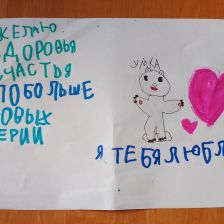 ЖЕЛАЮ
ЗДОРОВЬЯ
СЧАСТЬЯ
ПОБОЛЬШЕ
ОВЫХ
ЕРИЙ
УМКА
Я ТЕБЯ ЛЮБЛ